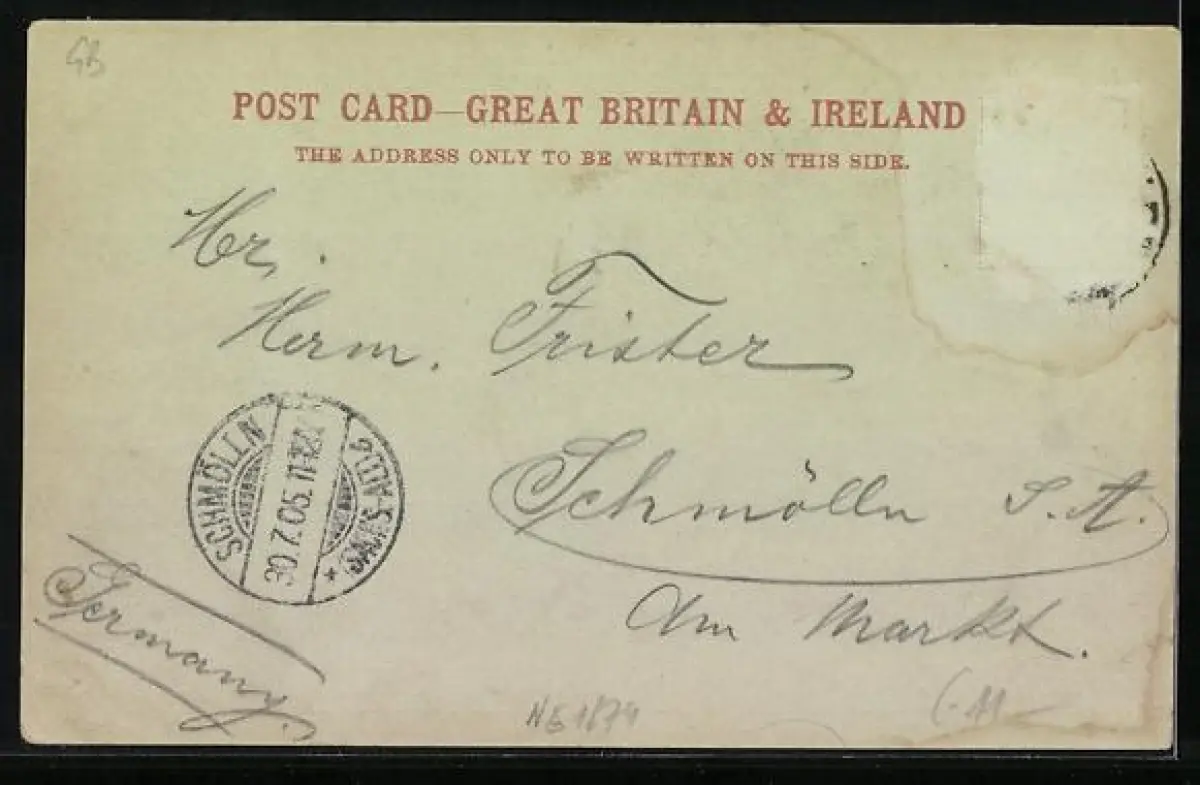 GB
POST CARD—GREAT BRITAIN & IRELAND
THE ADDRESS ONLY TO BE WRITTEN ON THIS SIDE.
Hr.
Herm. Frister
Schmölln S.A.
Am Markt.
Germany.
SCHMÖLLN
30.7.05. 11-12